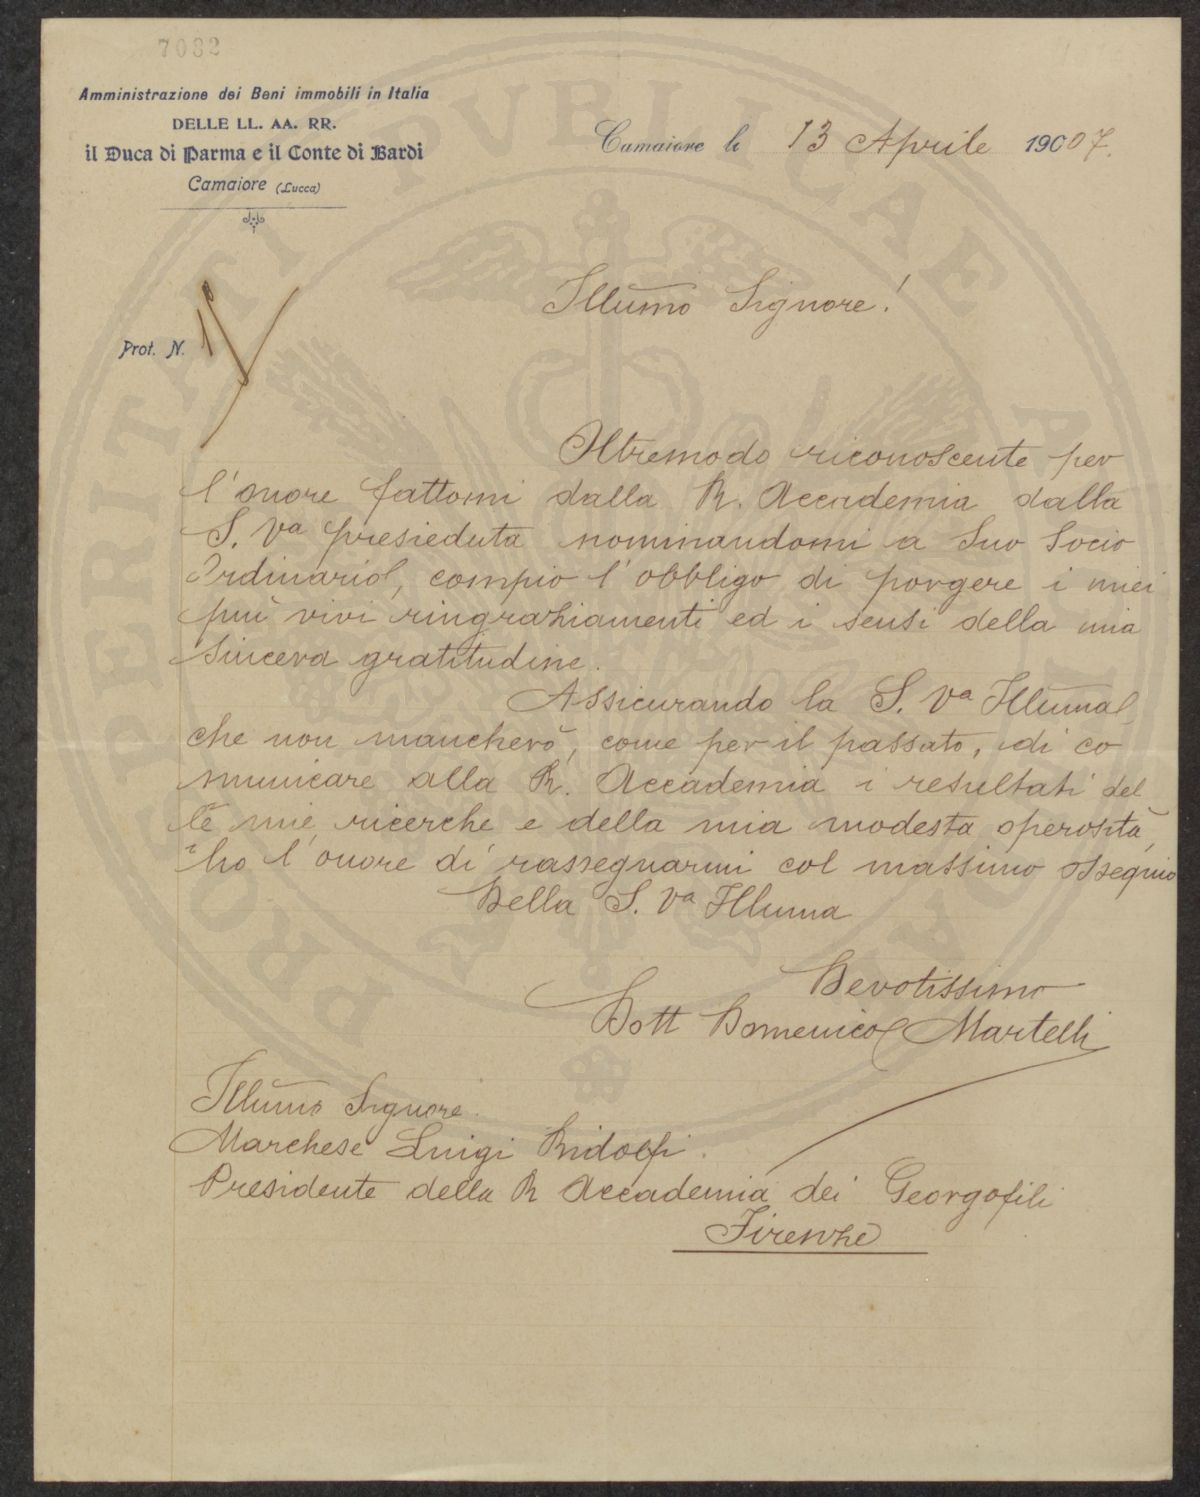 7032
Amministrazione dei Beni immobili in Italia
DELLE LL. AA. RR.
il Duca di Parma e il Conte di Bardi
Camaiore (Lucca)
Camaiore li 13 Aprile 19007.
Prot. N.
Illumo Signore!
Oltremodo riconoscente per
l'onore fattomi dalla R. Accademia dalla
S. Va presieduta nominandomi a Suo Socio
Ordinario, compio l'obbligo di porgere i miei
più vivi ringraziamenti ed i sensi della mia
sincera gratitudine.
Assicurando la S. Va Illuma
che non mancherò, come per il passato, di co
municare alla R. Accademia i resultati del
le mie ricerche e della mia modesta operosità,
ho l'onore di rassegnarmi col massimo ossequio
Della S. Va Illuma
Devotissimo
Dott Domenico Martelli
Illumo Signore
Marchese Luigi Ridolfi.
Presidente della R Accademia dei Georgofili
Firenze
PROSPERITATI PVBLICAE AVGENDAE